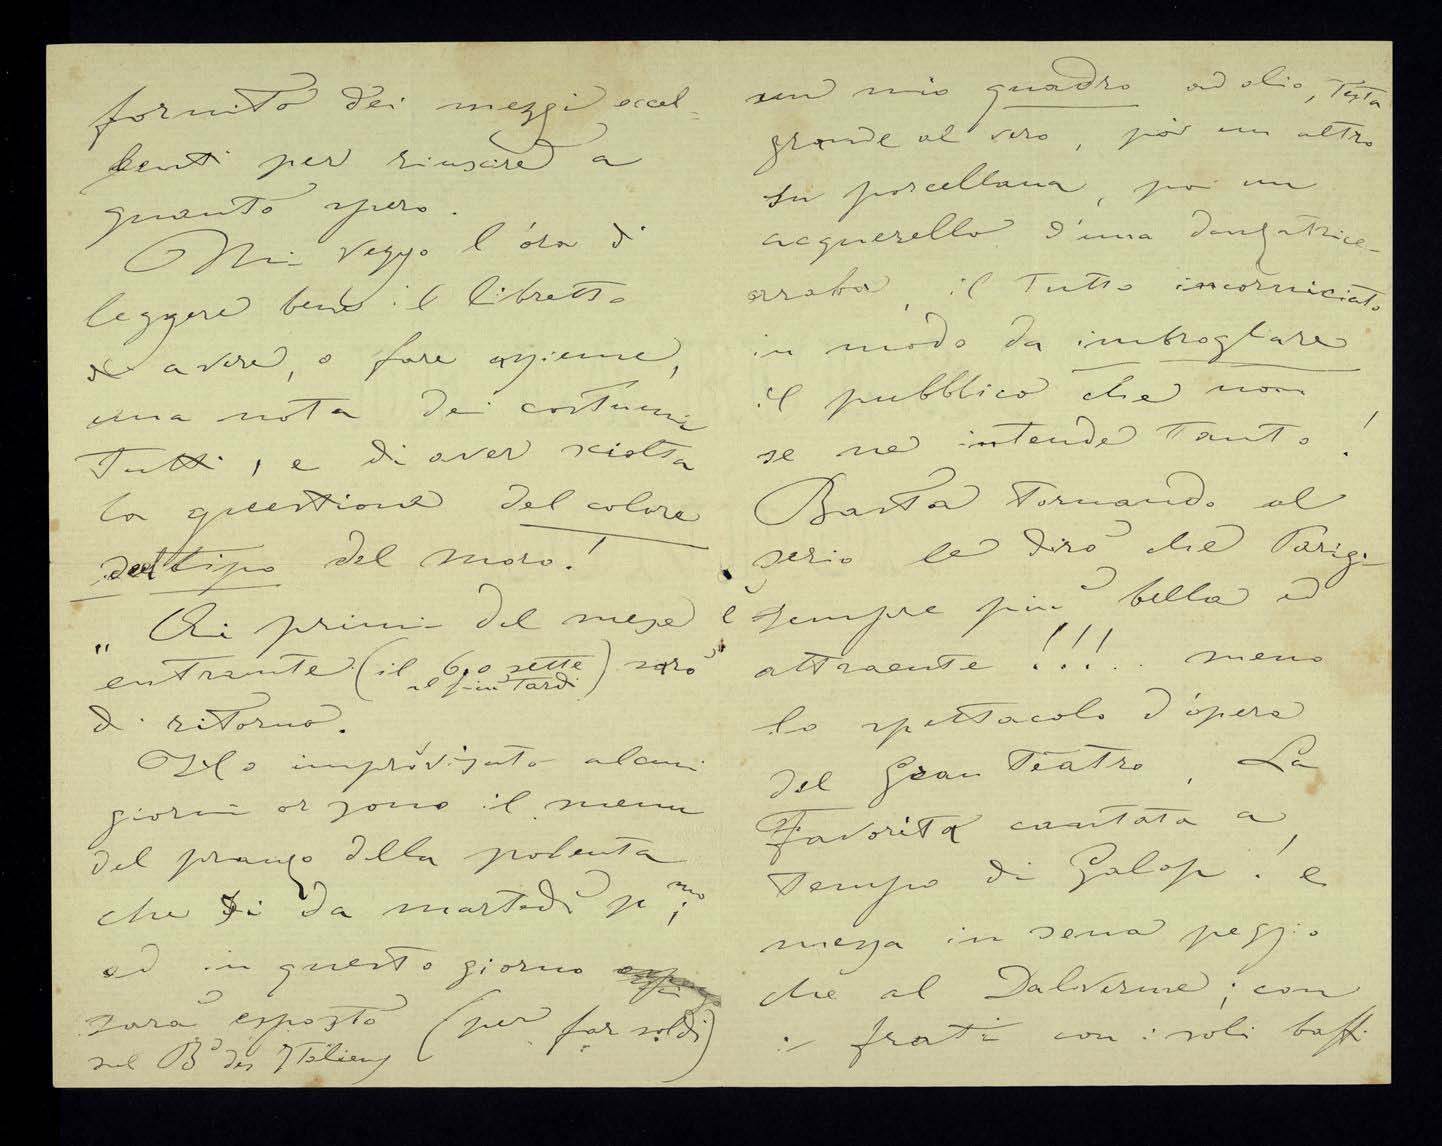 fornito dei mezzi eccel-
lenti per riuscire a
quanto spero.
Mi veggo l'óra di
leggere bene il libretto
di avere, o fare assieme,
una nota dei costumi
tutti, e di aver sciolta
la questione del colore
del tipo del moro!
Ai primi del mese
entrante (il 6, o sette
al più tardi) sarò
di ritorno.
Ho improvisato alcuni
giorni or sono il menu
del pranzo della polenta
che si da martedì p.mo
ed in questo giorno
sarà esposto (per far soldi)
nel Bd des Italiens
un mio quadro ad olio, Testa
grande al vero, pòi un altro
su porcellana, poi un
acquerello d'una danzatrice
arraba, il tutto incorniciato
in módo da imbrogliare
il pubblico che non
se ne intende tanto!
Basta tornando al
serio le dirò che Parigi
è sempre più bella ed
attraente !!!.. meno
lo spettacolo d'ópera
del Gran Teatro, La
Favorita cantata a
tempo di Galop! e
messa in scena peggio
che al Dalverme; con
i frati con i soli baffi